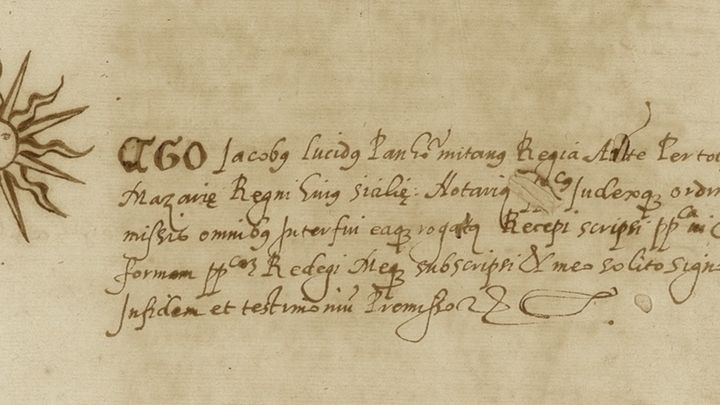 EGO Jacobus Lucidus Panhormitanus Regia Aucte Per tot
Mazarię Regni huius Sicilię: Notarius Judexq ordin
missis omnibus Interfui eaq rogatus Recepi scripsi ppcā
formam ppcam Redegi Meq subscripsi & meo solito Sign
Infidem et testimoniu Premisso